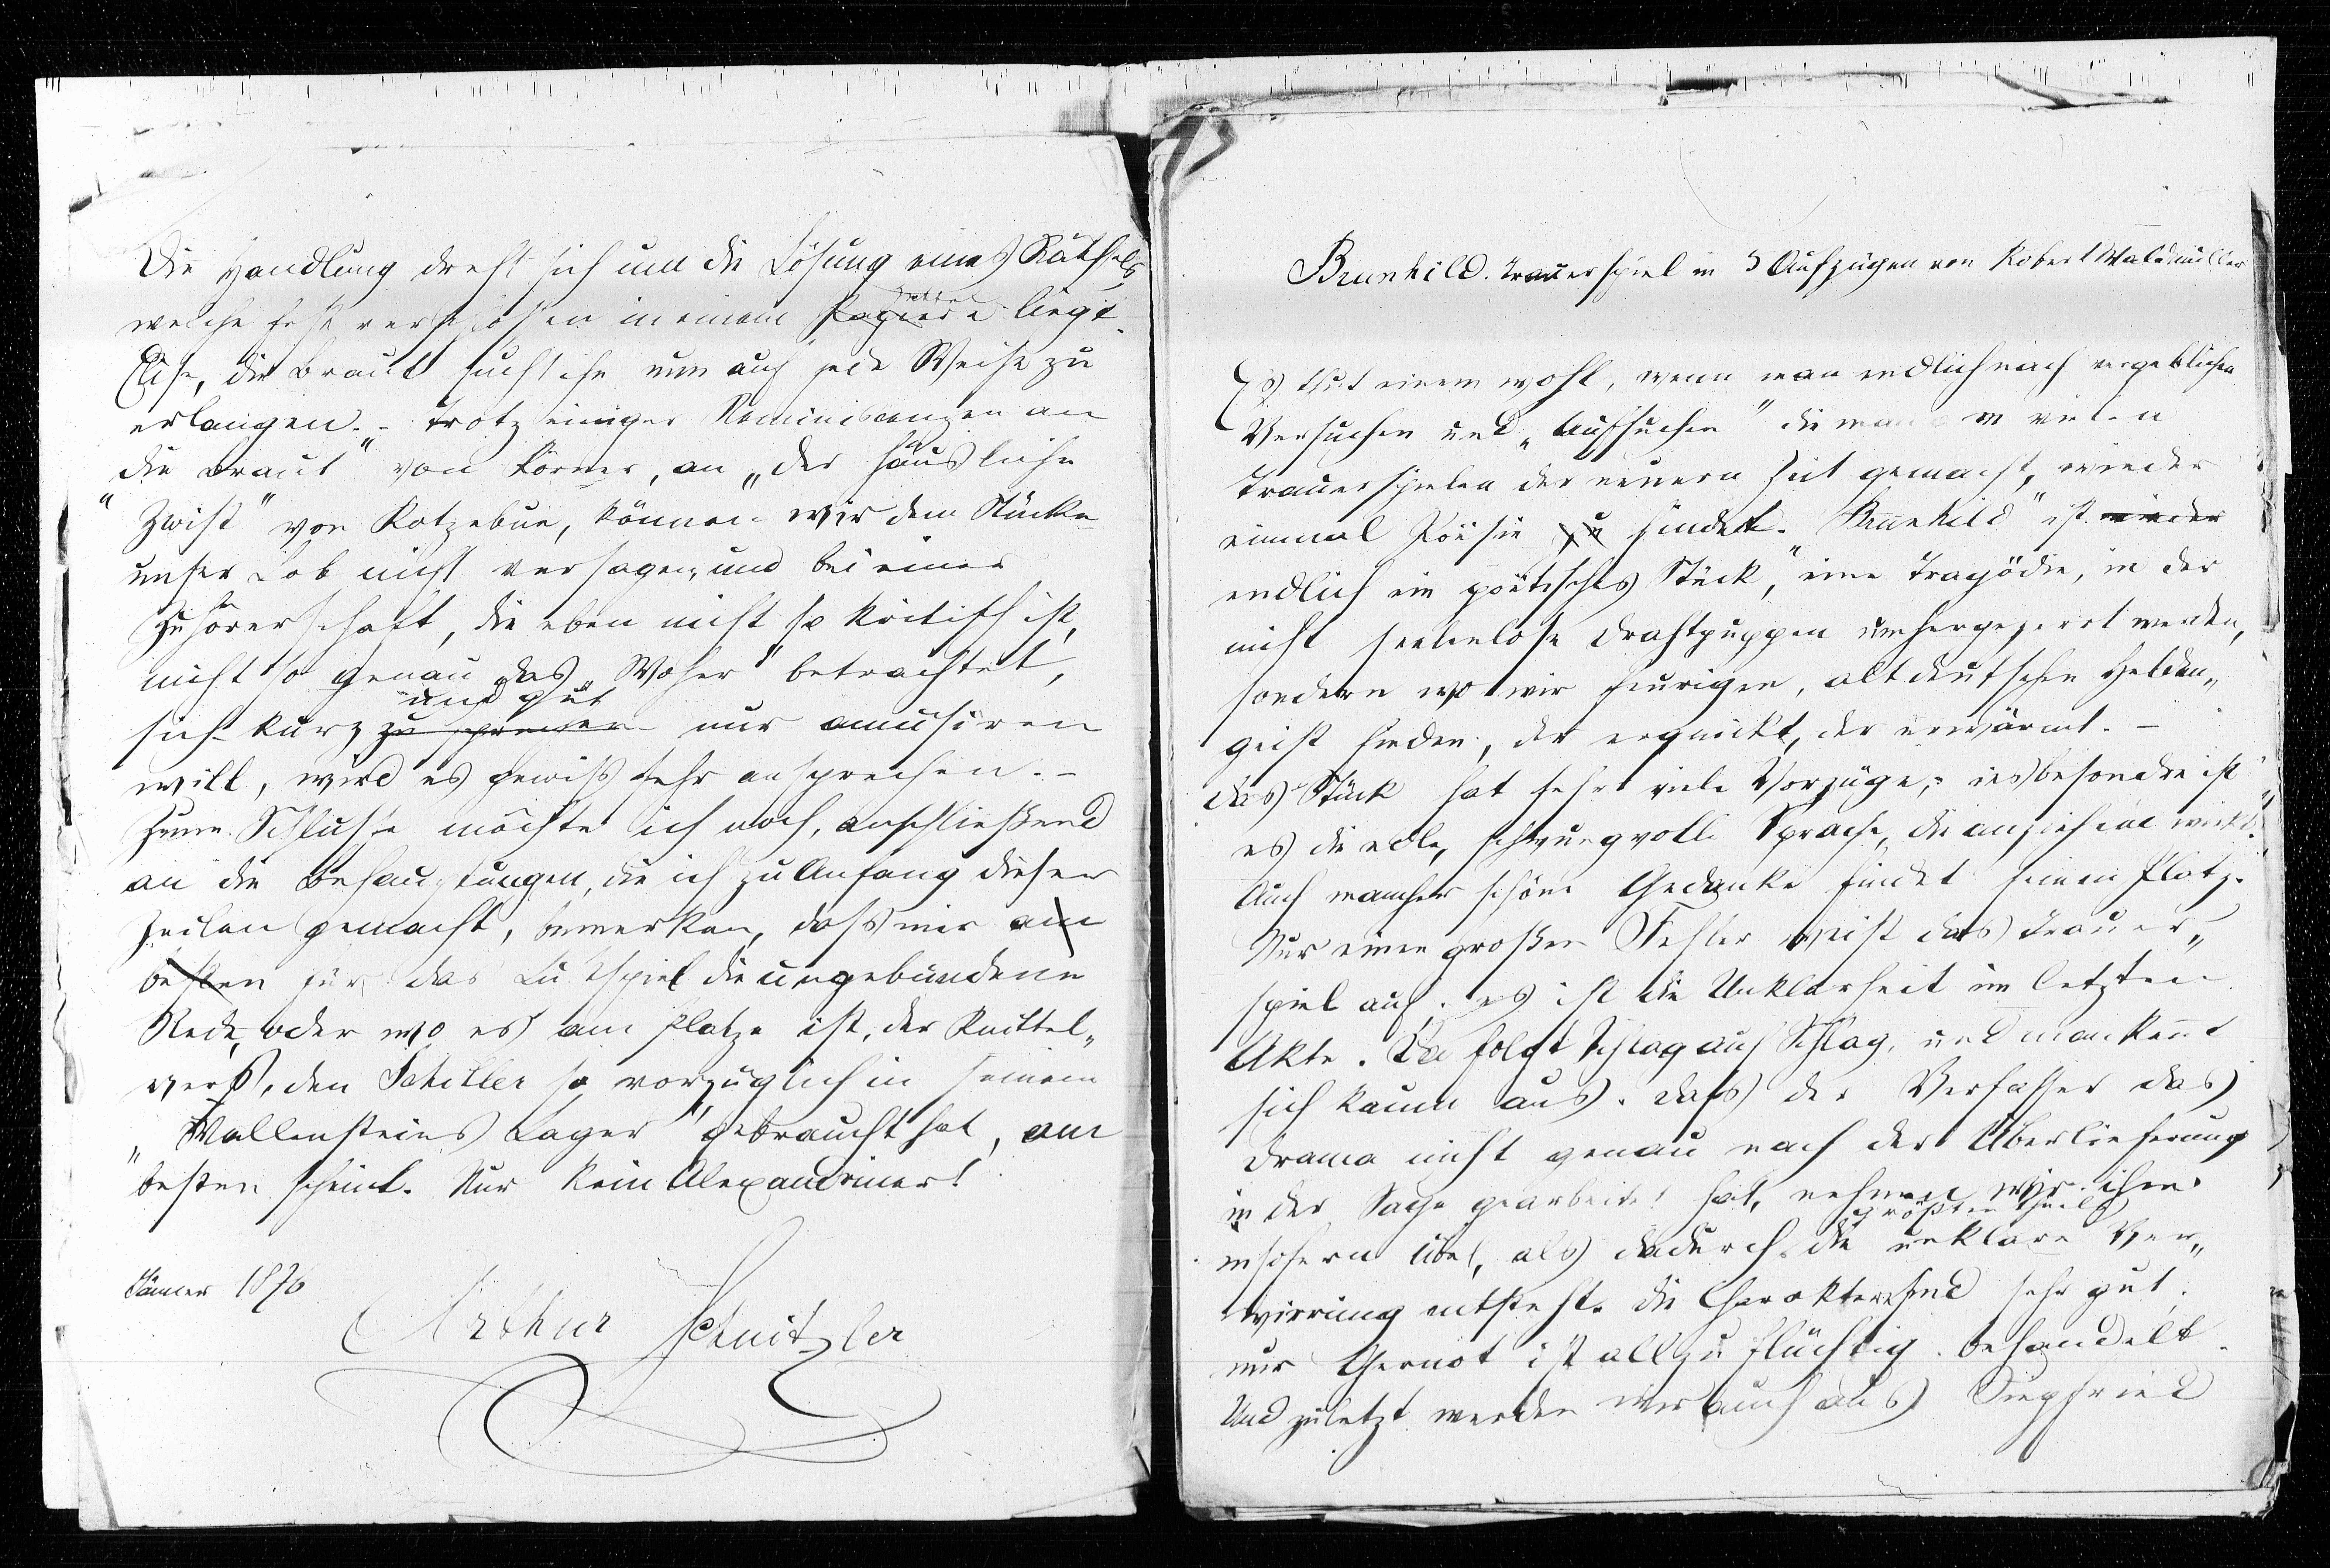 Die Handlung dreht sich um die Lösung eines Räthsels,
welche fest verschlossen in einem Papiere liegt.
Elise, die Braut sucht ihn nun auf jede Weise zu
erlangen. – Trotz einiger Reminiscenzen an
die Braut" von Körner, an „der häusliche
"Zwist" von Kotzebue, können wir dem Stücke
unser Lob nicht versagen, und bei einer
Zuhörerschaft, die eben nicht so kritisch ist,
nicht so genau das „Woher" betrachtet,
und gut
sich kurz zu sprechen nur amüsiren
will, wird es gewiß sehr ansprechen. –
Zum Schlusse möchte ich noch, anschließend
an die Behauptungen, die ich zu Anfang dieser
Zeilen gemacht, bemerken, daß mir am
besten für das Lustspiel die ungebundene
Rede, oder wo es am Platze ist, der Knittel„
vers, den Schiller so vorzüglich in seinem
„Wallensteins Lager" gebraucht hat, am
besten scheint. Nur kein Alexandriner!
Jänner 1876
Arthur Schnitzler
Brunhild. Trauerspiel in 5 Aufzügen von Robert Waldmüller
Es thut einem wohl, wenn man endlich nach vergeblichen
Versuchen und „Aufsuchen" die man in vielen
Trauerspielen der neuern Zeit gemacht, wieder
einmal Poësie zu findet. „Brunhild" ist wieder
endlich ein poëtisches Stück, eine Tragödie, in der
nicht seelenlose Drahtpuppen umhergezerrt werden,
sondern wo wir feurigen, altdeutschen Helden„
geist finden, der erquickt, der erwärmt. –
Das Stück hat sehr viele Vorzüge; insbesondre ist
es die edle, schwungvolle Sprache, die anziehend wirkt.
Auch mancher schöne Gedanke findet seinen Platz.
Nur einen großen Fehler weist das Trauer„
spiel auf; es ist die Unklarheit im letzten
Akte. Da folgt Schlag auf Schlag, und man kennt
sich kaum aus. Daß der Verfasser das
Drama nicht genau nach der Überlieferung
in der Sage gearbeitet hat, nehmen wir ihm
größtentheils
insofern übel, als dadurch die unklare Ver„
wirrung entsteht. Die Charaktere sind sehr gut,
nur Gernot ist allzu flüchtig behandelt.
Und zuletzt werden wir auch aus Siegfried